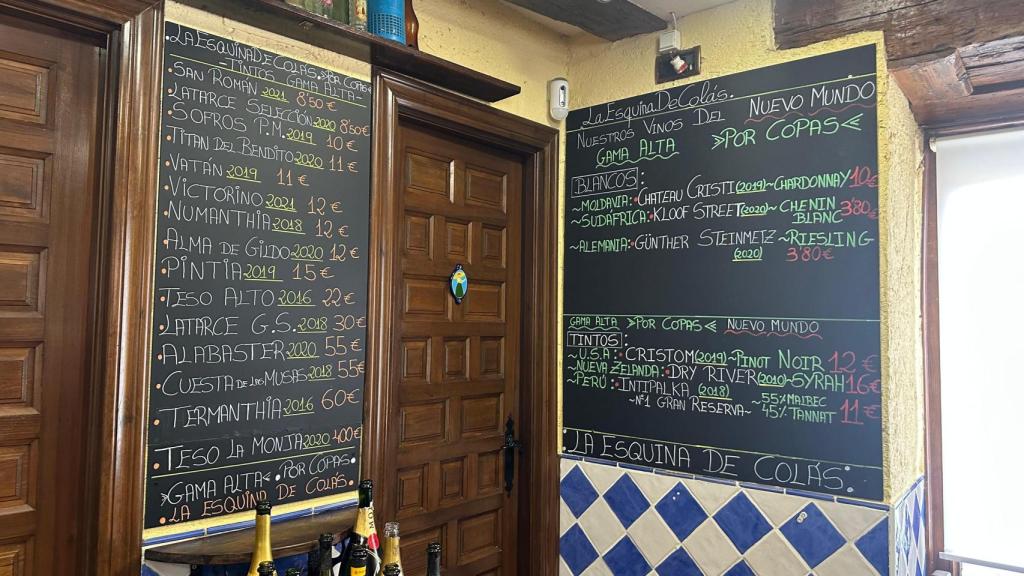 .LA ESQUINA DE COLÁS.
-TINTOS GAMA ALTA-
•SAN ROMÁN 2021 8'50€
•LATARCE SELECCIÓN 2020 8'50€
•SOFROS P.M. 2019 10€
•TITAN DEL BENDITO 2020 11€
•VATÁN 2019 11€
•VICTORINO 2021 12€
•NUMANTHIA 2018 12€
ALMA DE GILDO 2020 12€
•PINTIA 2019 15€
•TESO ALTO 2016 22€
•LATARCE G.S. 2018 30€
•ALABASTER 2020 55€
•CUESTA DE LAS MUSAS 2018 55€
•TERMANTHIA 2016 60€
•TESO LA MONJA 2020 400€
»GAMA ALTA« •POR COPAS•
•LA ESQUINA DE COLÁS.
.LA ESQUINA DE COLÁS.
NUESTROS VINOS DEL NUEVO MUNDO
GAMA ALTA »POR COPAS«
BLANCOS:
~MOLDAVIA: CHATEAU CRISTI (2019)~CHARDONNAY 10€
~SUDÁFRICA: KLOOF STREET (2020)~CHENIN BLANC 3'80€
~ALEMANIA: GÜNTHER STEINMETZ ~RIESLING
(2020) 3'80€
GAMA ALTA »POR COPAS« NUEVO MUNDO
TINTOS:
~U.S.A: CRISTOM (2019)~PINOT NOIR 12€
~NUEVA ZELANDA: DRY RIVER (2010)~SYRAH 16€
~PERÚ: INTIPALKA (2018) ~55% MALBEC
~Nº1 GRAN RESERVA~ 45% TANNAT 11€
.LA ESQUINA DE COLÁS.